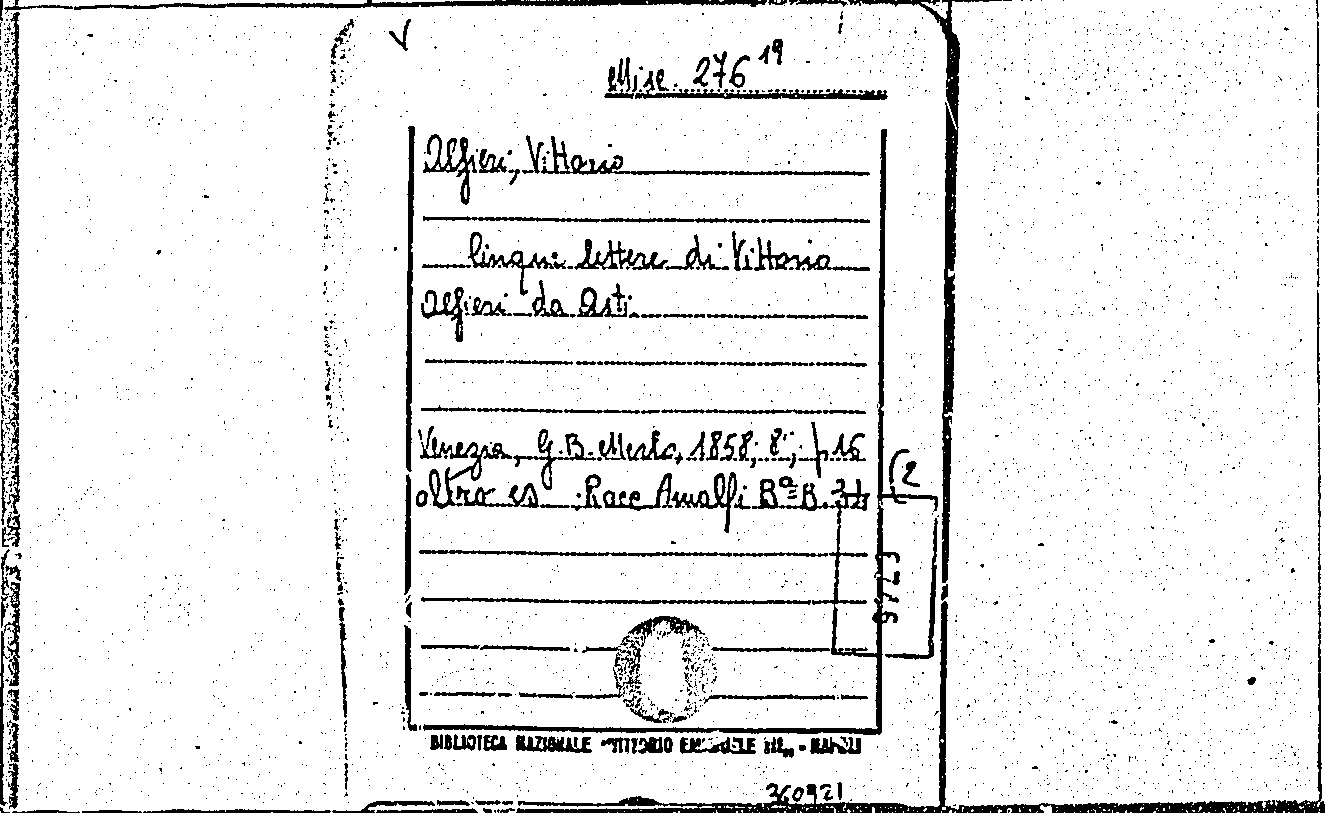 V
Misc. 276 19
Alfieri, Vittorio
Cinque lettere di Vittorio
Alfieri da Asti.
Venezia, G.B. Merlo, 1858, 8°, p. 16
altro es. : Racc Amalfi Bª B.
(2
BIBLIOTECA NAZIONALE "VITTORIO EMANUELE III" - NAPOLI
360921